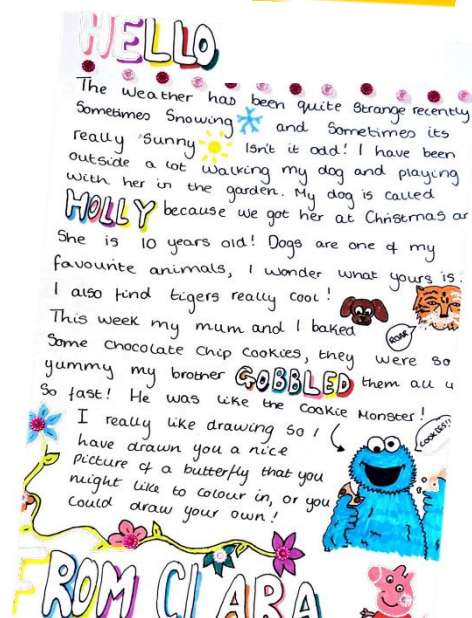 HELLO
The weather has been quite strange recently
Sometimes Snowing and Sometimes its
really sunny Isn't it odd! I have been
outside a lot walking my dog and playing
with her in the garden. My dog is called
HOLLY because we got her at Christmas
She is 10 years old! Dogs are one of my
favourite animals, I wonder what yours is.
I also find tigers really cool!
ROAR
This week my mum and I baked
Some chocolate chip cookies, they were so
yummy my brother GOBBLED them all
So fast! He was like the Cookie Monster!
COOKIES!!
I really like drawing so I
have drawn you a nice
picture of a butterfly that you
might like to colour in, or you
could draw your own!
FROM CLARA